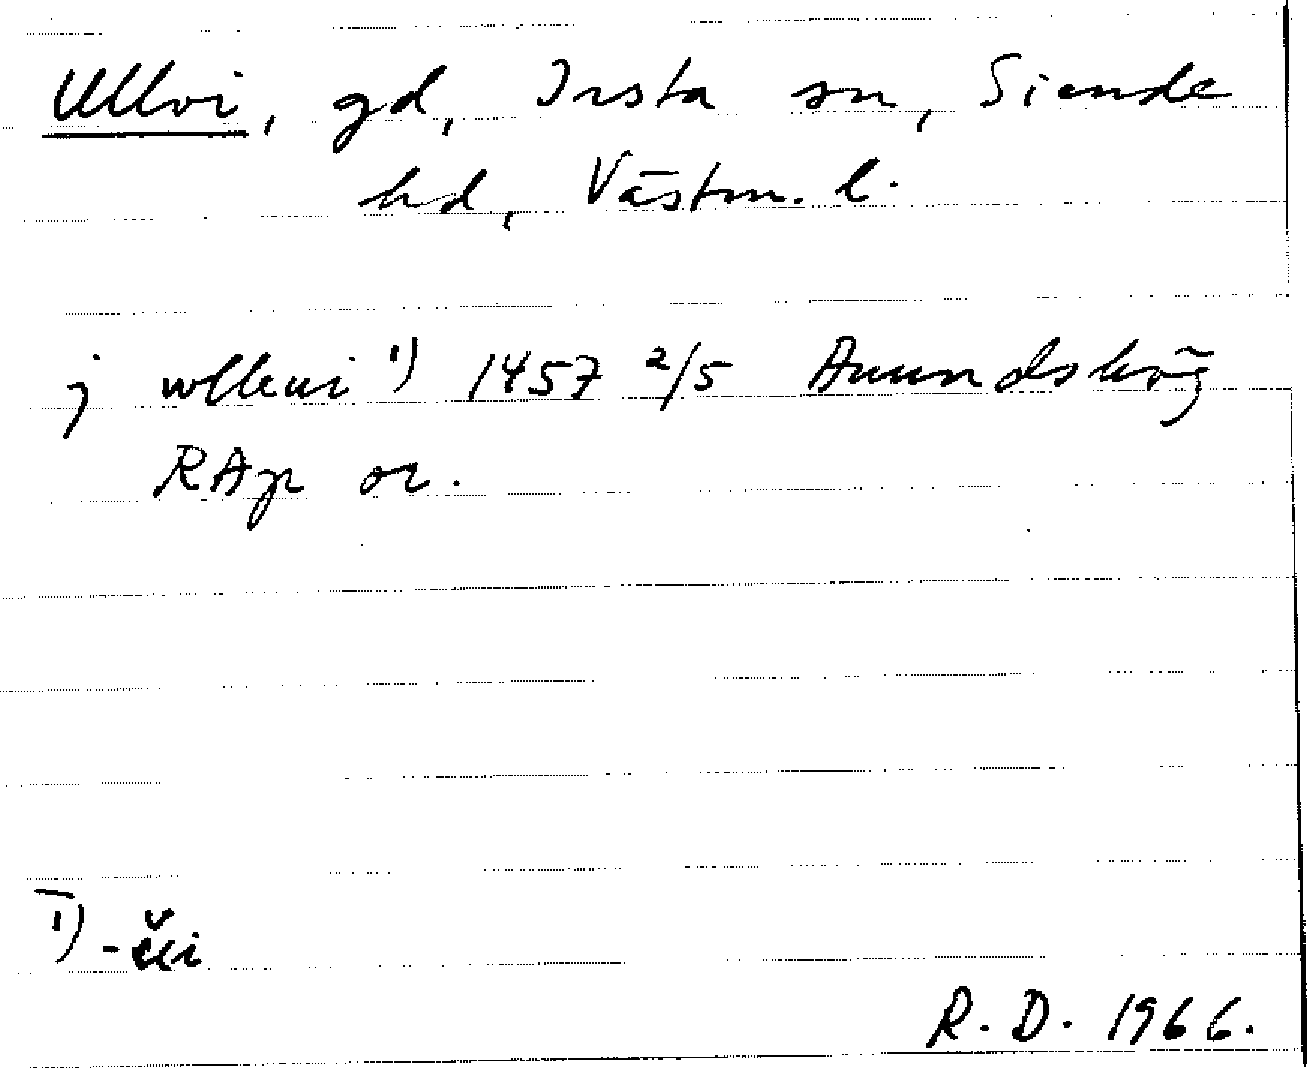 Ullvi, gd, Irsta sn, Siende
hd, Västm. l.
j wlleui ¹) 1457 2/5 Amundskög
RAp or.
¹) -ĕui
R. D. 1966.